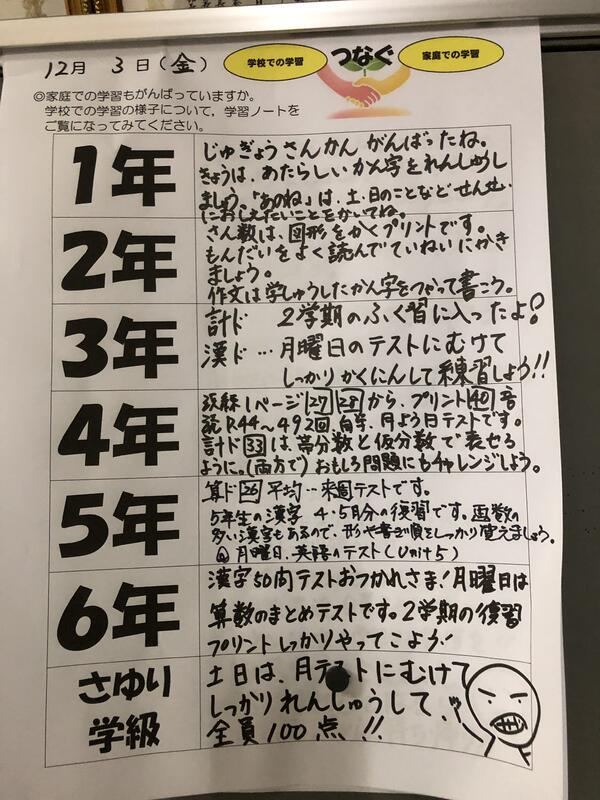 12月 3日(金)
学校での学習
つなぐ
家庭での学習
◎家庭での学習もがんばっていますか。
学校での学習の様子について,学習ノートを
ご覧になってみてください。
1年
じゅぎょうさんかん がんばったね。
きょうは、あたらしいかん字をれんしゅうし
ましょう。「あのね」は、土・日のことなど せんせい
におしえたいことをかいてね。
2年
さん数は、図形をかくプリントです。
もんだいをよく読んでていねいにかき
ましょう。
作文は学しゅうしたかん字をつかって書こう。
3年
計ド 2学期のふく習に入ったよ!
漢ド…月曜日のテストにむけて
しっかりかくにんして練習しよう!!
4年
1ページ 27 28 から、プリント 40 音
読 P.44〜49 2回、月よう日テストです。
計ド 33 は、帯分数と仮分数で表せる
ように。(両方で)おもしろ問題にもチャレンジしよう。
5年
算ド 26 平均…来週テストです。
5年生の漢字 4・5月分の復習です。画数の
多い漢字もあるので、形や書き順をしっかり覚えましょう。
月曜日、英語のテスト(Unit 5)
6年
漢字50問テストおつかれさま!月曜日は
算数のまとめテストです。2学期の復習
プリントしっかりやってこよう!
さゆり
学級
土日は、月テストにむけて
しっかりれんしゅうして、
全員100点!!